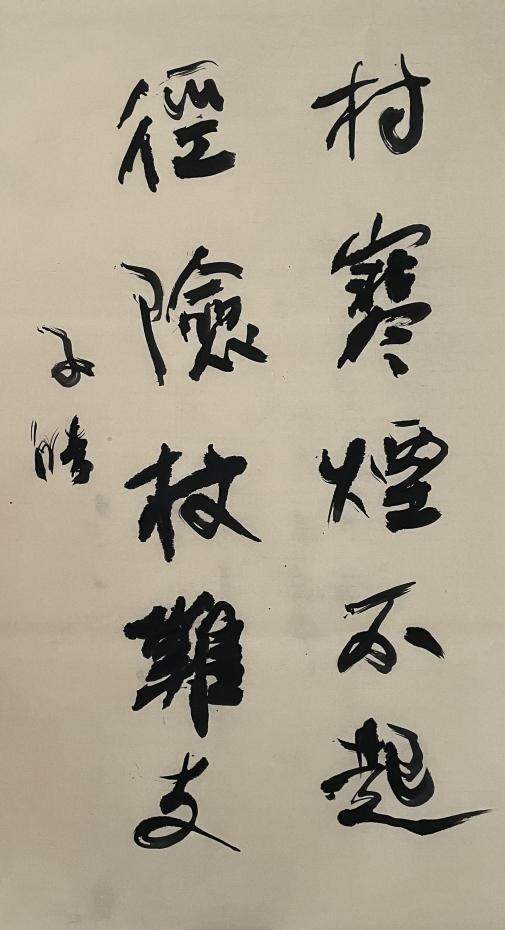 村寒煙不起
徑險杖難支
子